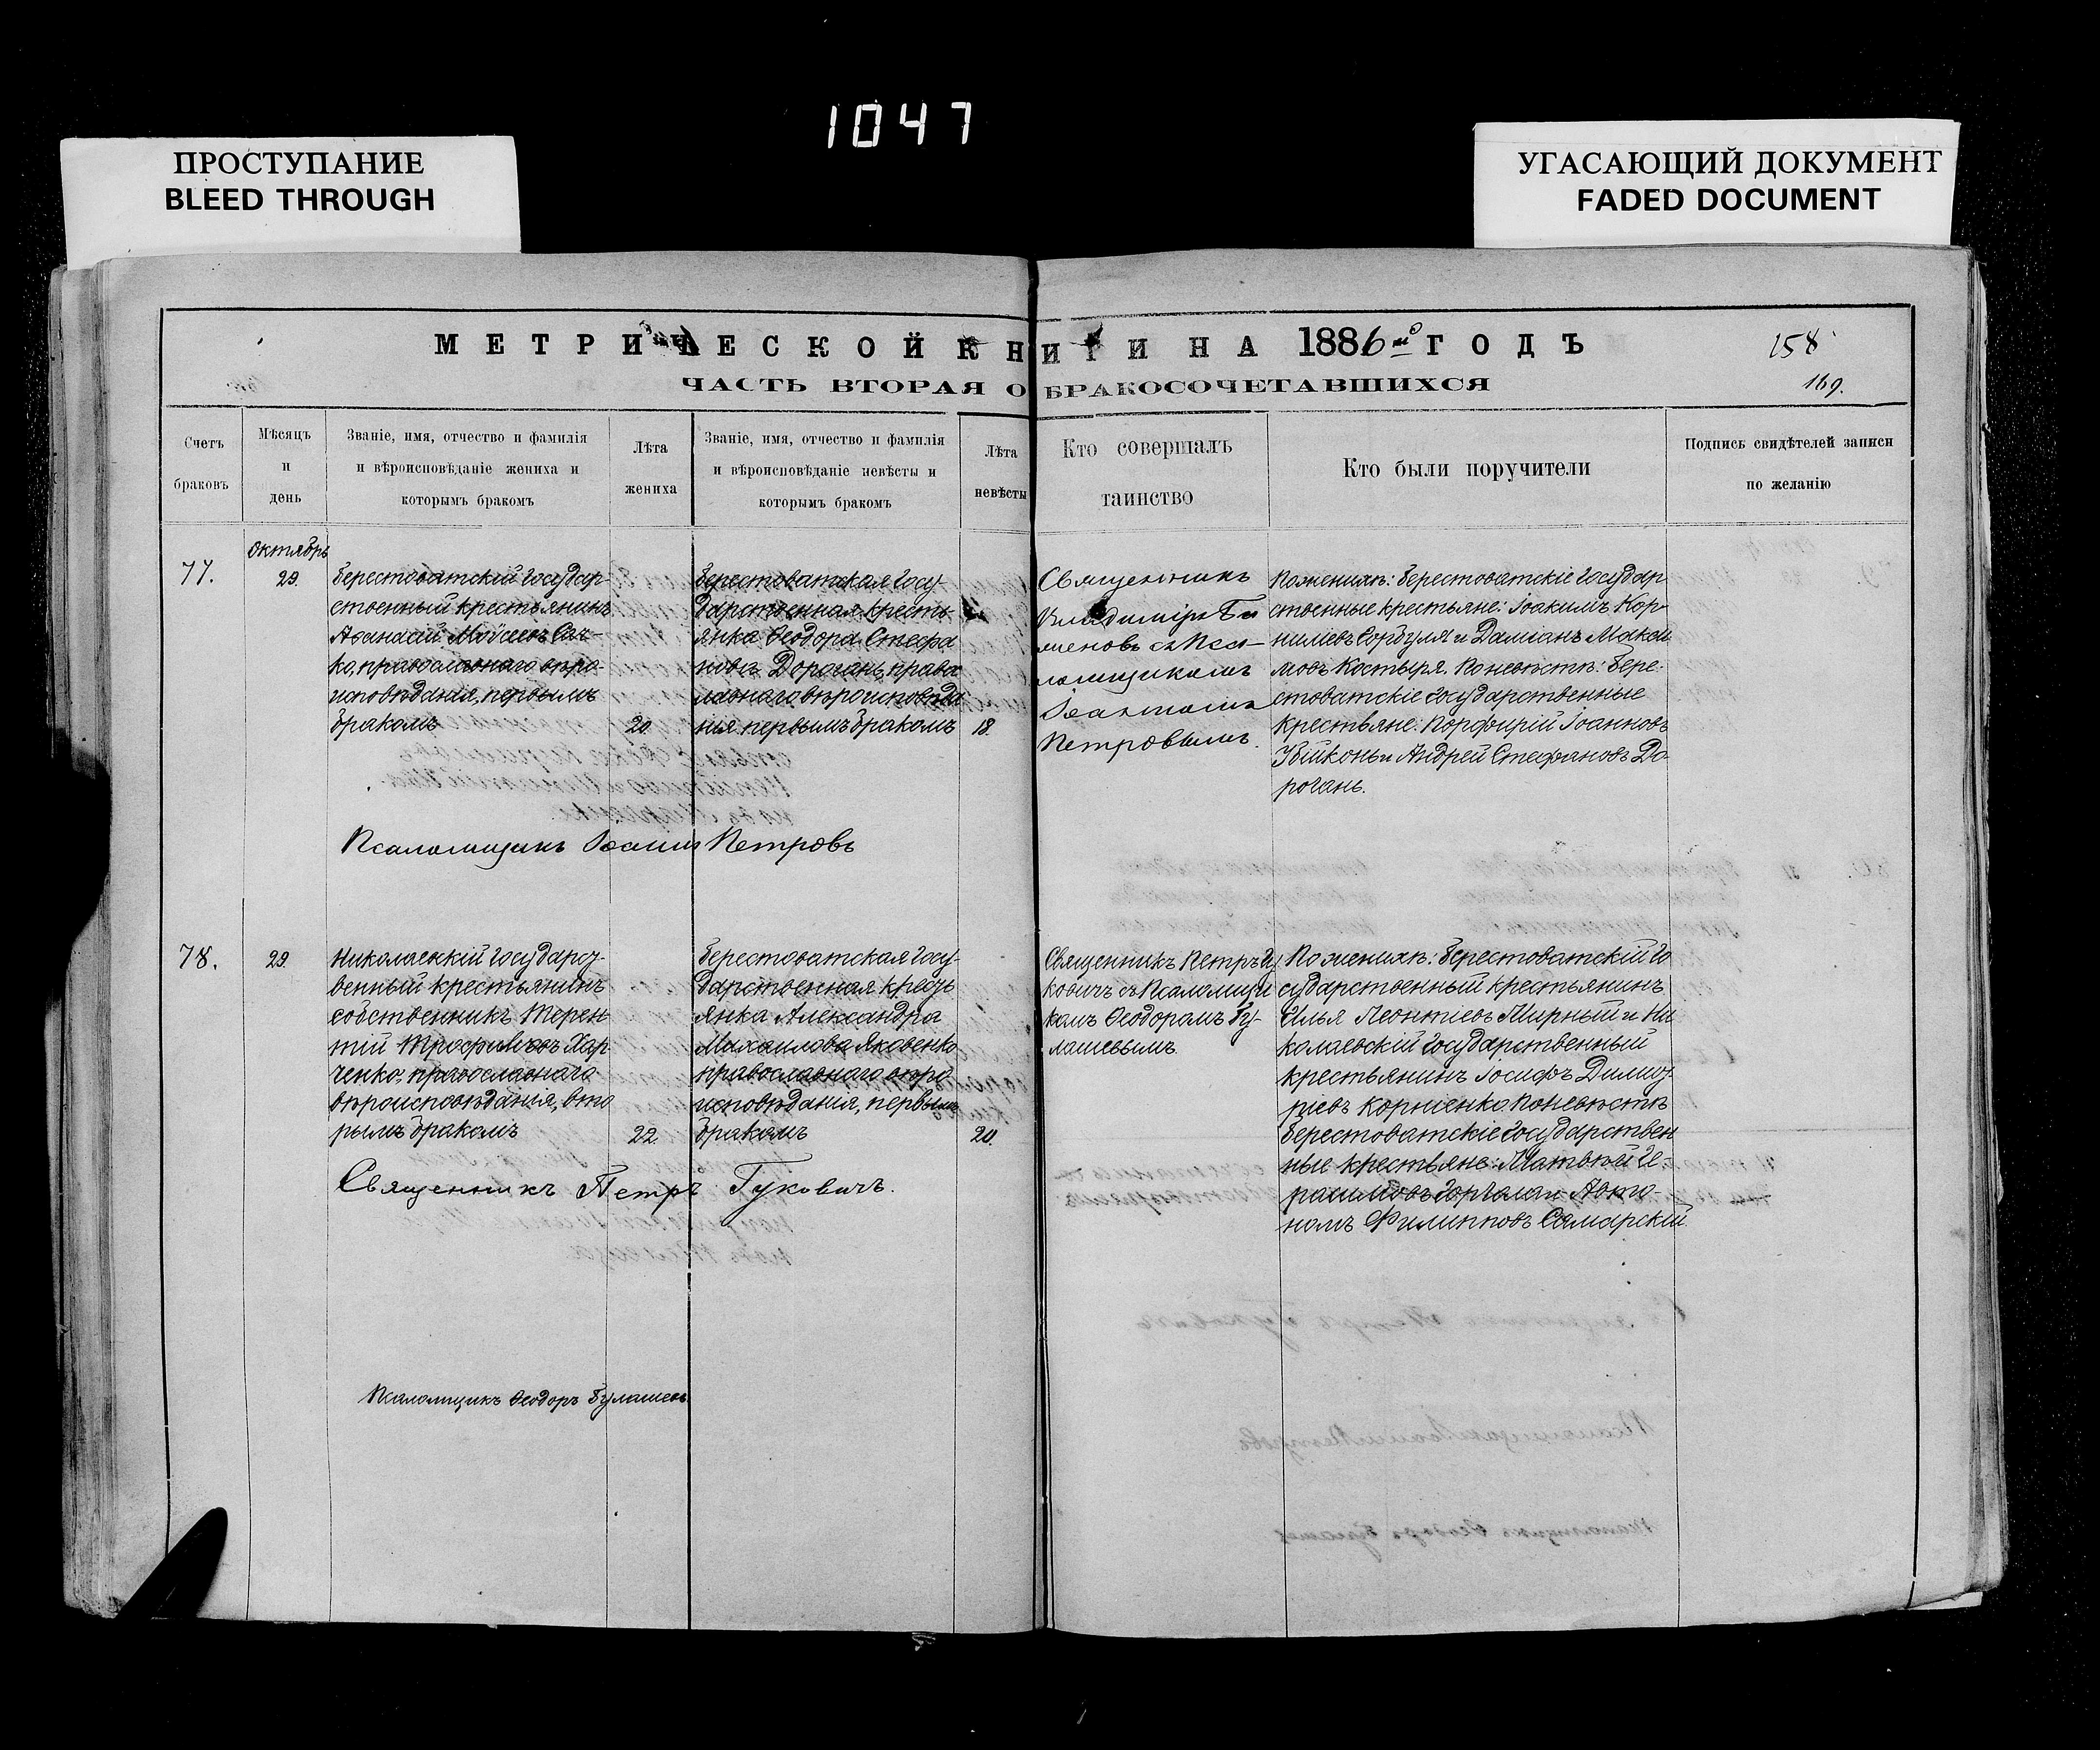 1047
ПРОСТУПАНИЕ
BLEED THROUGH
УГАСАЮЩИЙ ДОКУМЕНТ
FADED DOCUMENT
МЕТРИЧЕСКОЙ КНИГИ НА 1886й ГОДЪ
158
ЧАСТЬ ВТОРАЯ О БРАКОСОЧЕТАВШИХСЯ
169.
Счетъ
браковъ
Мѣсяцъ
и
день
Званіе, имя, отчество и фамилія
и вѣроисповѣданіе жениха и
которымъ бракомъ
Лѣта
жениха
Званіе, имя, отчество и фамилія
и вѣроисповѣданіе невѣсты и
которымъ бракомъ
Лѣта
невѣсты
Кто совершалъ
таинство
Кто были поручители
Подпись свидѣтелей записи
по желанію
77.
Октябрь
29.
Берестоватскій государ-
ственный крестьянинъ
Аѳанасій Моѵсеевъ
православнаго вѣро-
исповѣданія, первымъ
бракомъ
20
Берестоватская госу-
дарственная кресть-
янка Ѳеодора Стефа
нова Дорогань, правос
лавнаго вѣроисповѣда
нія первымъ бракомъ
18.
Священникъ
Владиміръ
съ Пса-
ломщикомъ
Іоанномъ
Петровымъ.
По женихѣ: Берестоватскіе государ
ственные крестьяне: Іоакимъ Кор-
ниліевъ Горбуля и Даміанъ Макси
мовъ Костыря. По невѣстѣ: Бере-
стоватскіе государственные
крестьяне: Порфирій Іоанновъ
Убійконь и Андрей Стефановъ До-
рогань.
Псаломщикъ Іоаннъ Петровъ
78.
29.
Николаевскій государст-
венный крестьянинъ
собственникъ Терен
тій Трофимовъ Хар
ченко, православнаго
вѣроисповѣданія, вто
рымъ бракомъ
22
Берестоватская госу-
дарственная кресть
янка Александра
Михаилова Яковенко
православнаго вѣро
исповѣданія, первымъ
бракомъ
20.
Священникъ Петръ Гу
ковичъ съ Псаломщи
комъ Ѳеодоромъ Бу-
лашевымъ.
По женихѣ: Берестоватскій го
сударственный крестьянинъ
Илья Леонтіевъ Мирный и Ни
колаевскій государственный
крестьянинъ Іосифъ Димит-
ріевъ Корніенко. По невѣстѣ
Берестоватскіе государствен
ные крестьяне: Матвѣй Ге-
расимовъ и Авто-
номъ Филипповъ Самарскій
Священникъ Петръ Гуковичъ.
Псаломщикъ Ѳеодоръ Булашевъ.